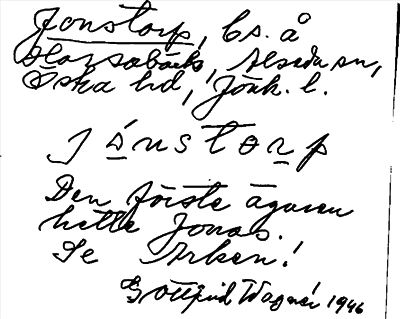 Jonstorp, Gs. å
Harsabäcks, Alseda sn,
Östra hd, Jönk. l.
Jónstorp
Den förste ägaren
hette Jonas.
Se Arken!
Gottfrid Wagnér 1946